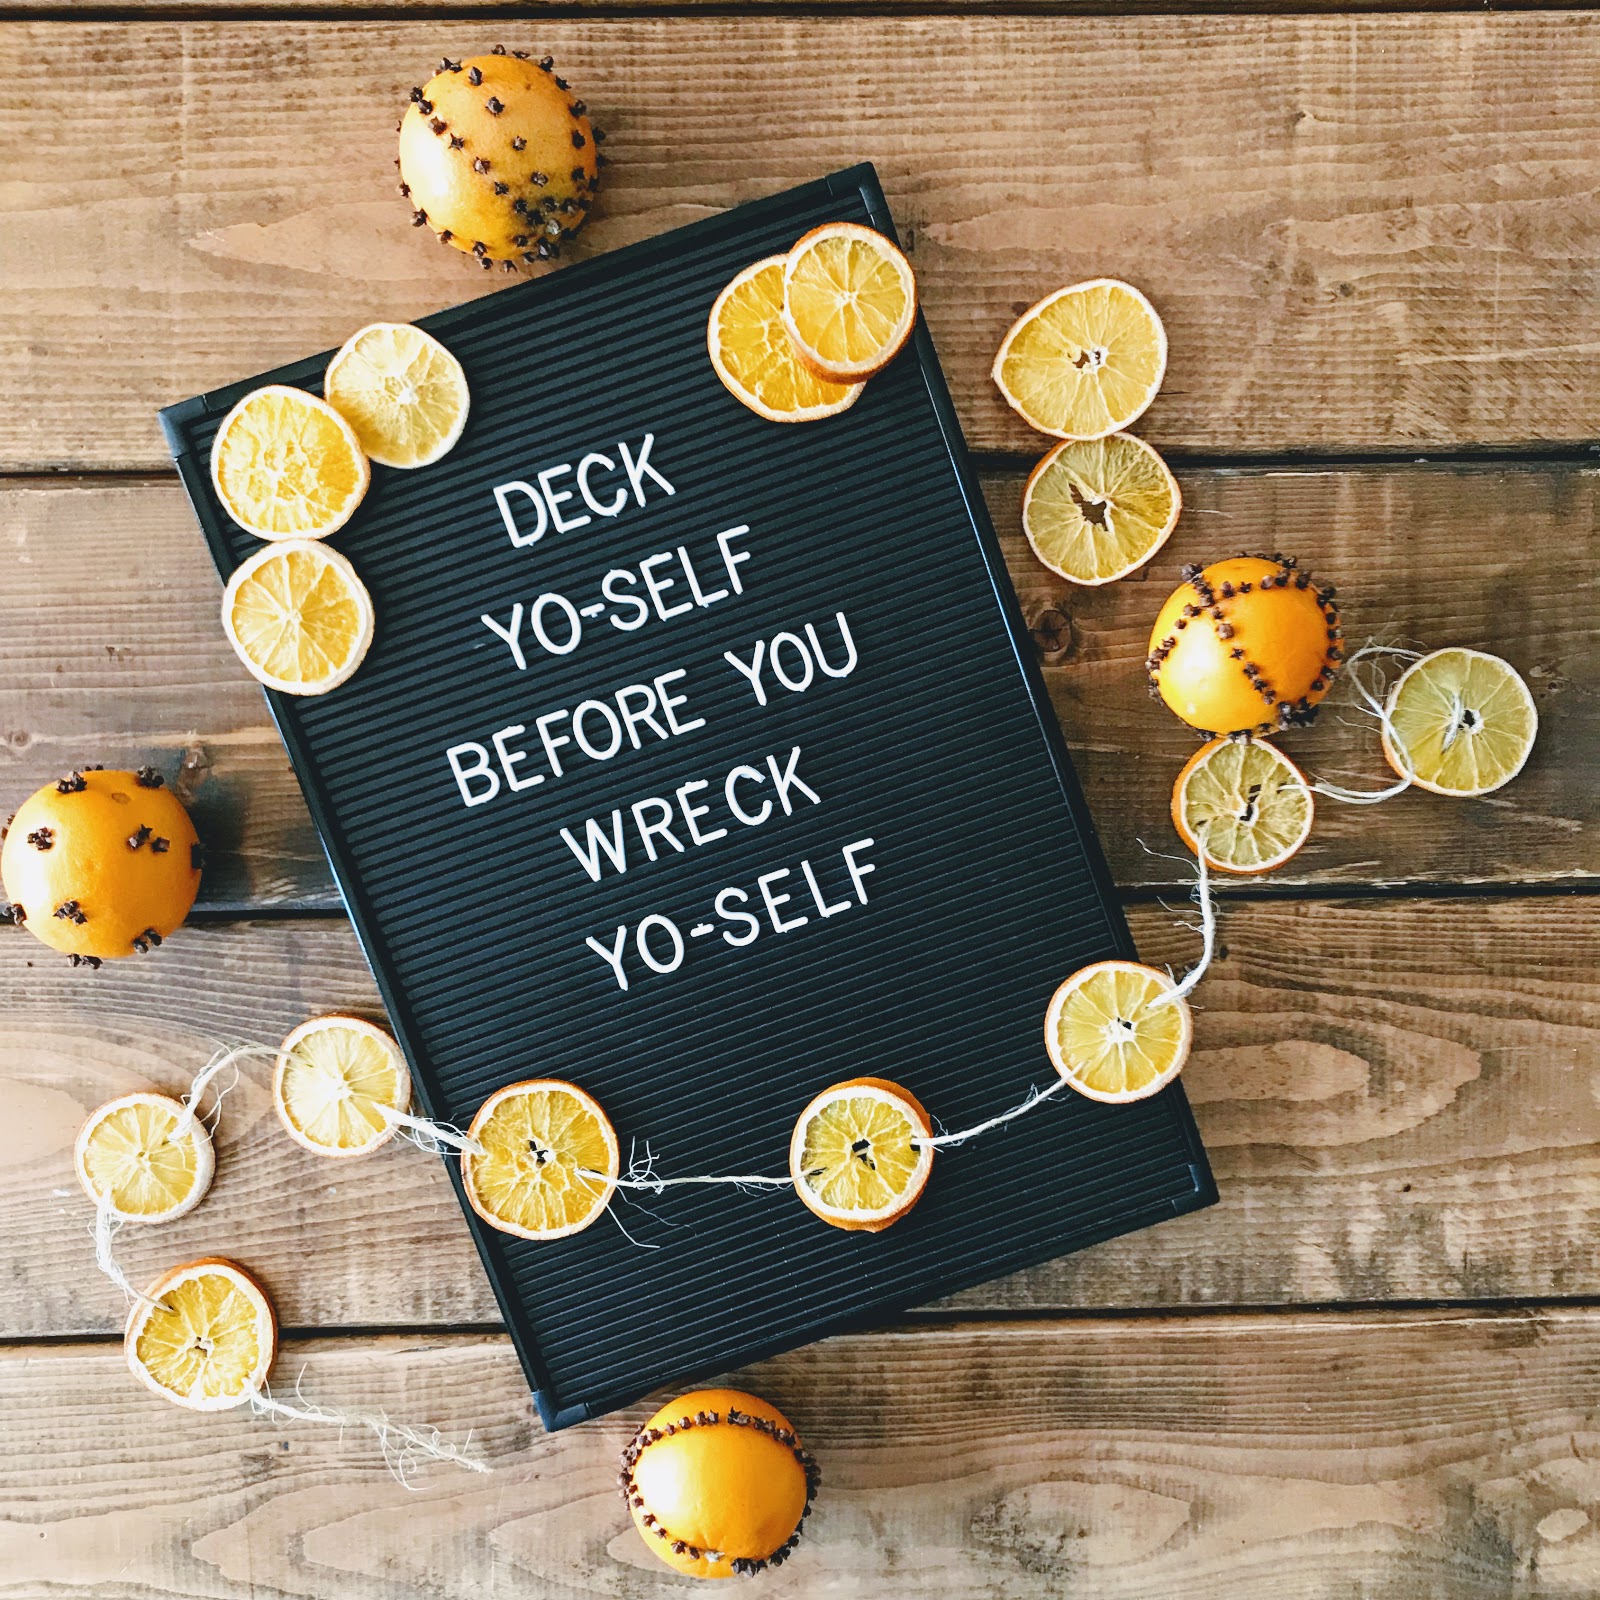 DECK
YO-SELF
BEFORE YOU
WRECK
YO-SELF